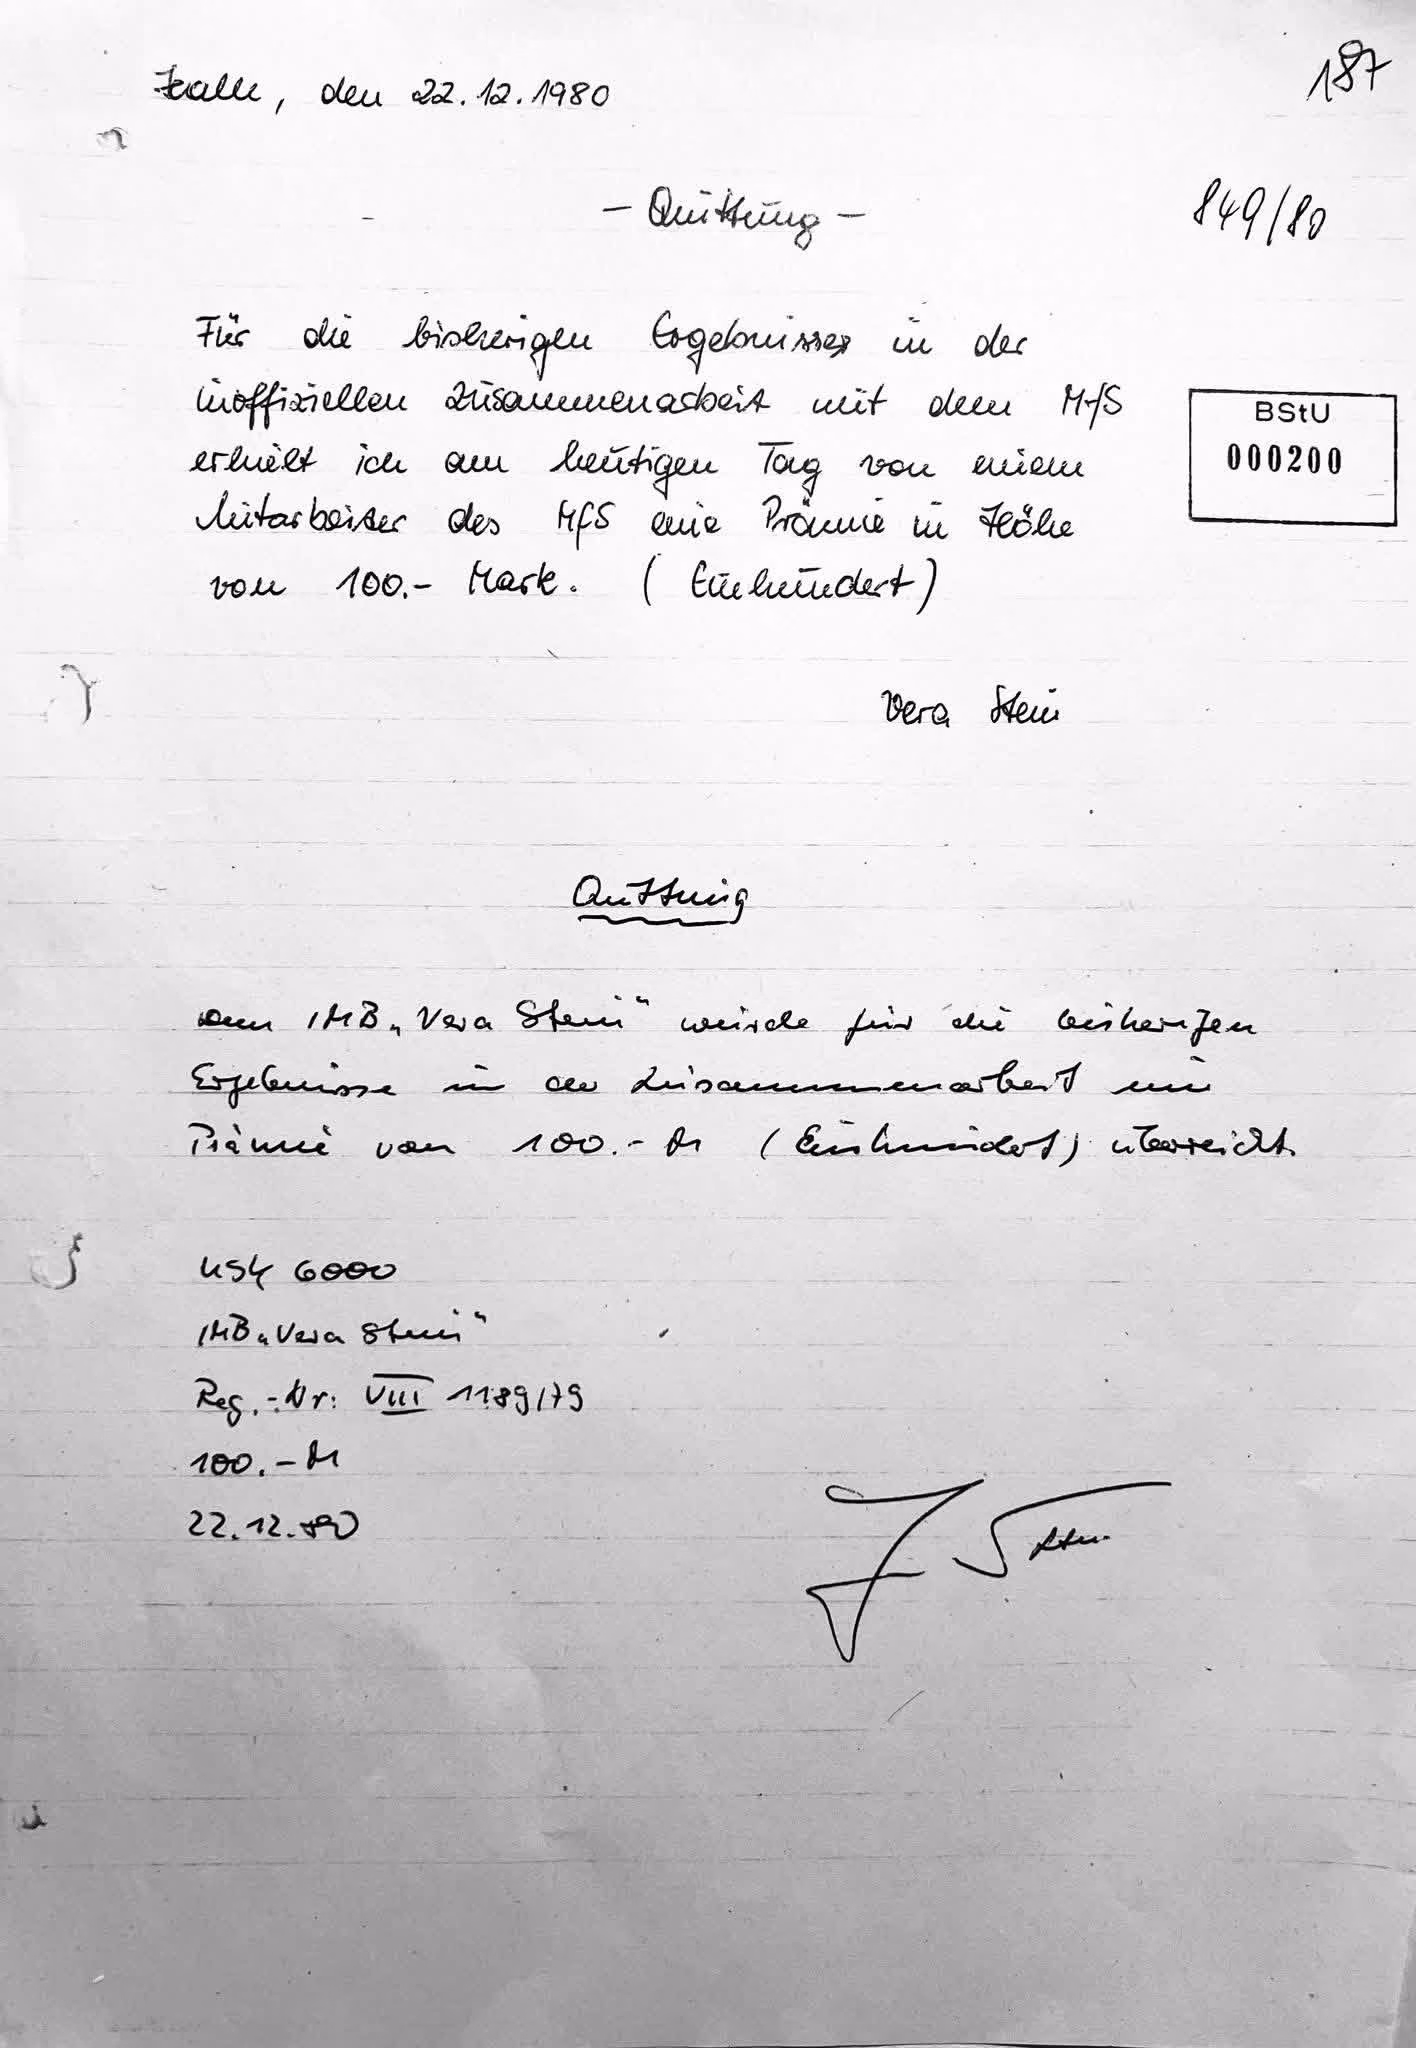 Halle, den 22.12.1980
187
- Quittung -
849/80
Für die bisherigen Ergebnisse in der
inoffiziellen Zusammenarbeit mit dem MfS
erhielt ich am heutigen Tag von einem
Mitarbeiter des MfS eine Prämie in Höhe
von 100.- Mark. (Einhundert)
BStU
000200
Vera Stein
Quittung
Dem IMB „Vera Stein" wurde für die bisherigen
Ergebnisse in der Zusammenarbeit eine
Prämie von 100.- M (Einhundert) überreicht.
6000
IMB „Vera Stein"
Reg.-Nr: VIII 1189/79
100.- M
22.12.80